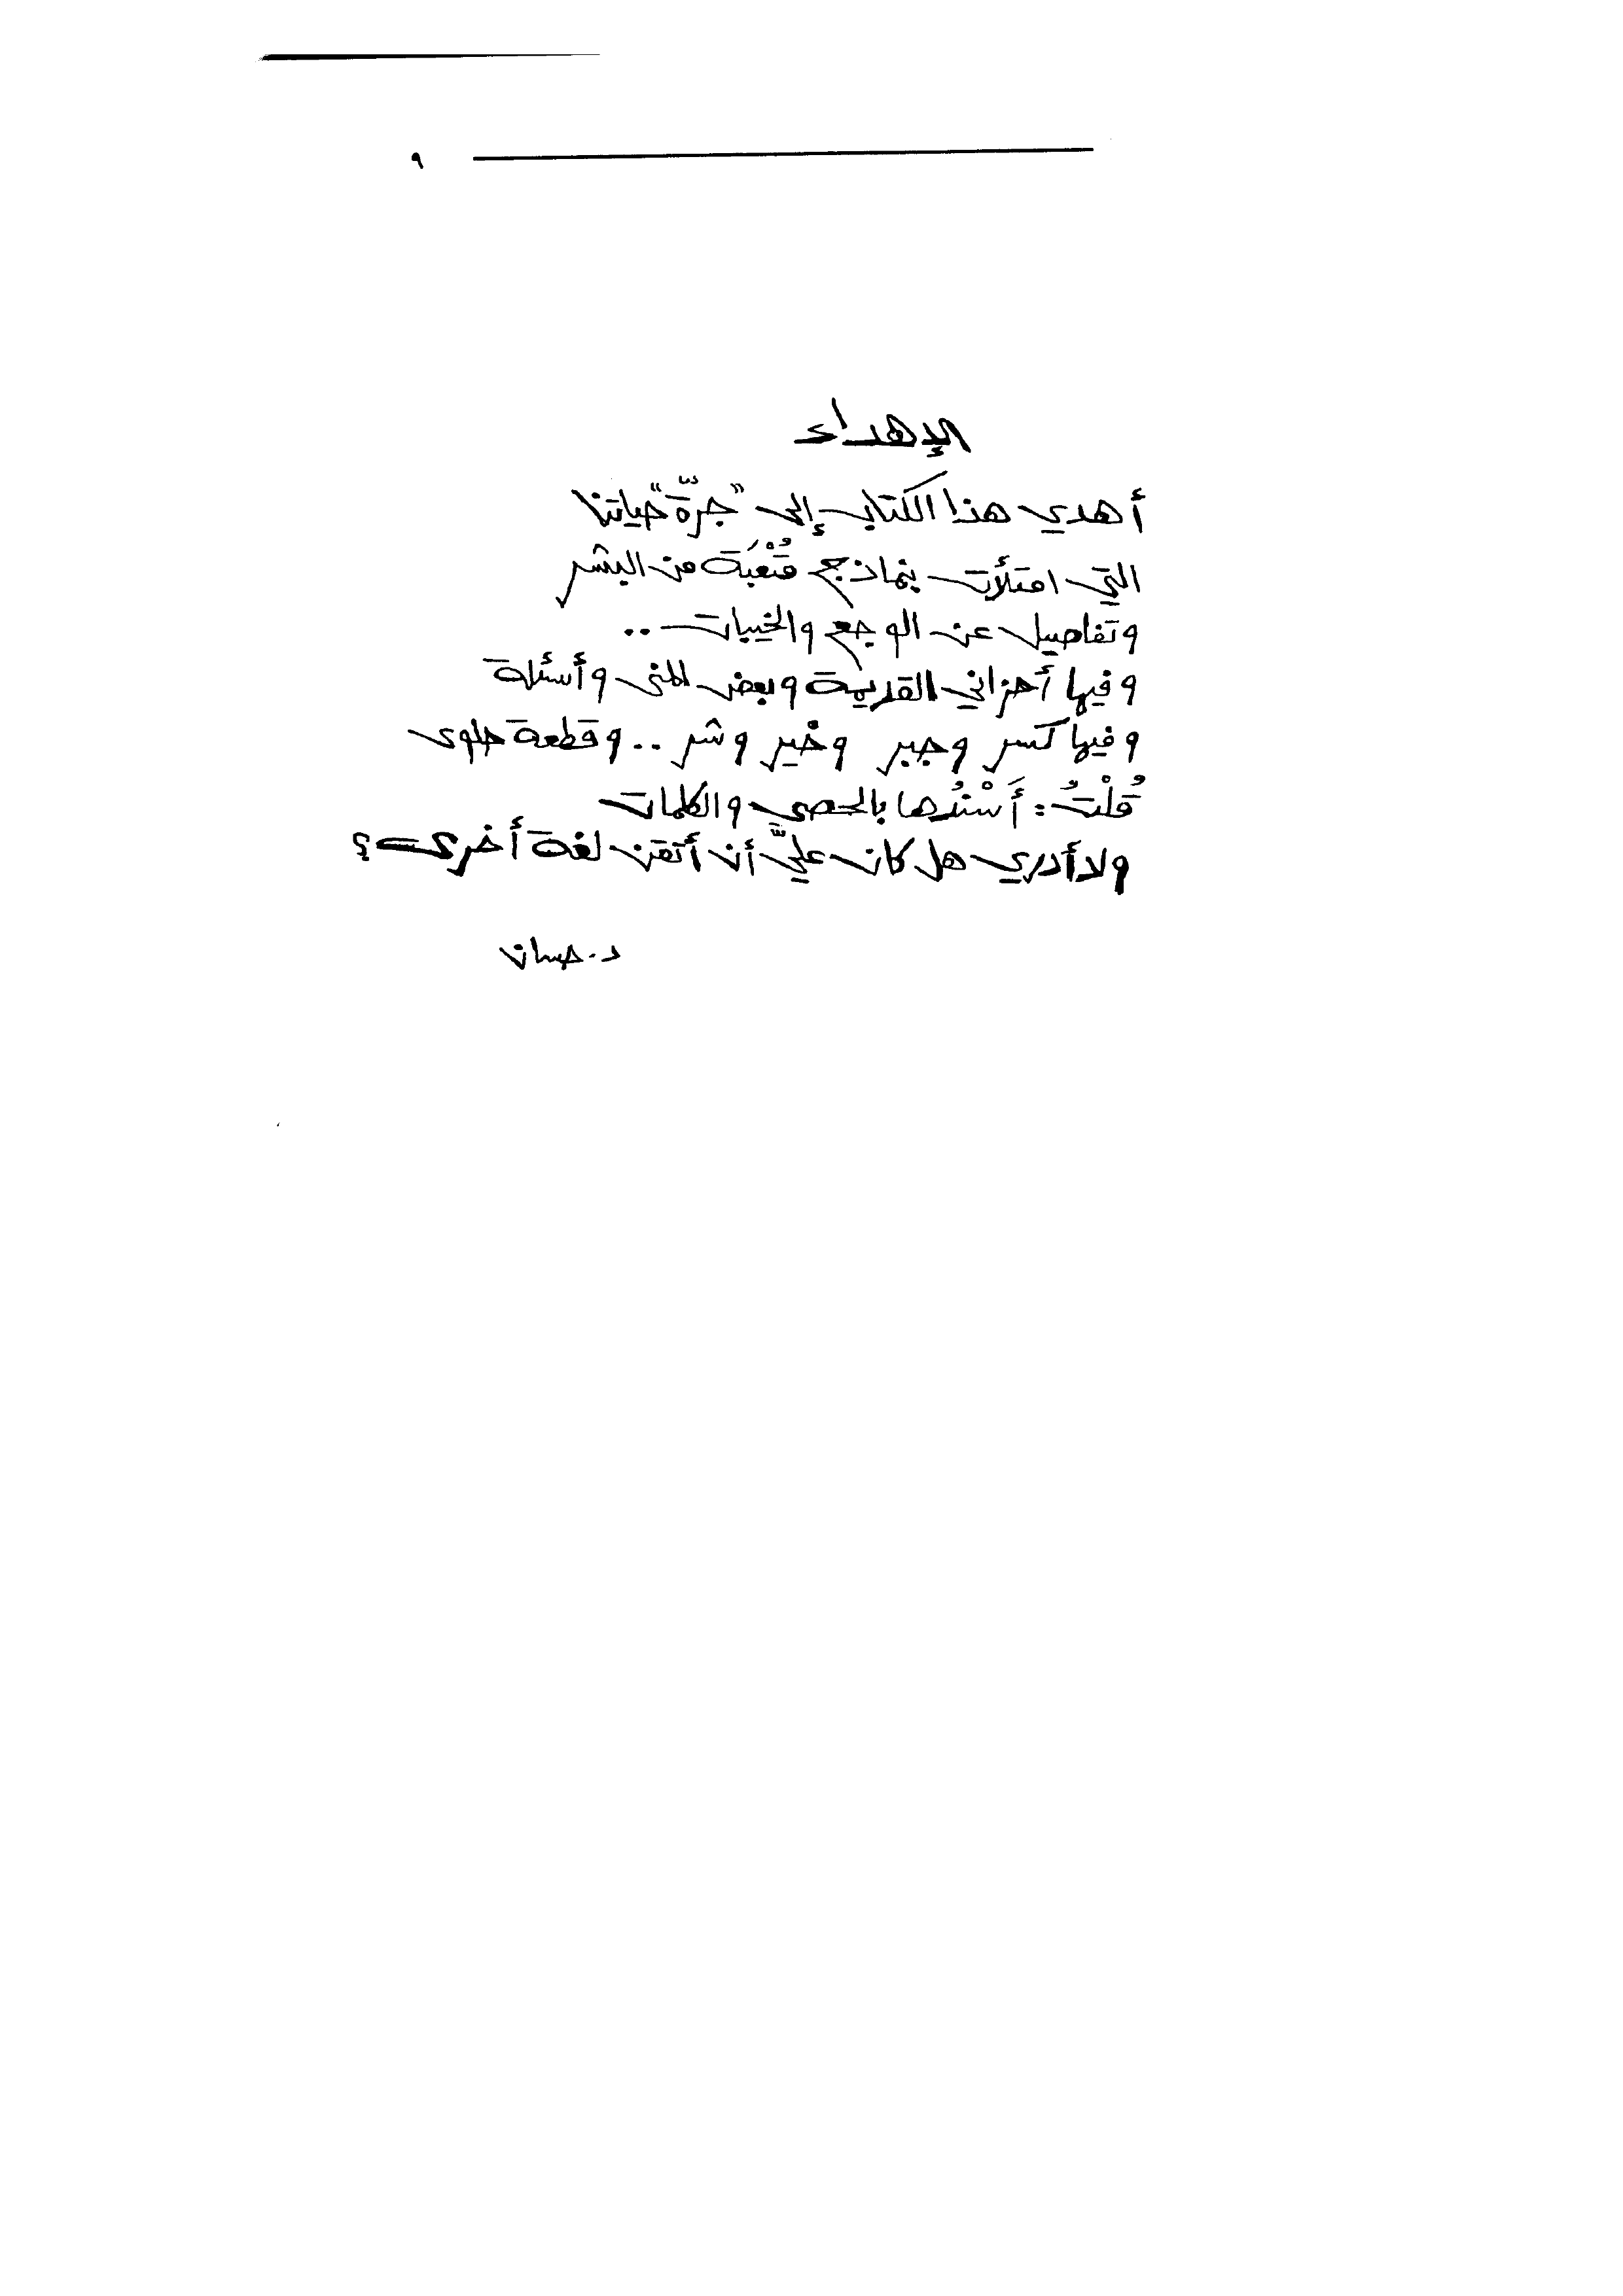 ٩
الإهداء
أهدي هذا الكتاب إلى "جرّة" حياتنا
التي امتلأت بنماذج مُتْعِبَة من البشر
وتفاصيل عن الوجع والخيبات ..
وفيها أحزاني القديمة وبعض المنى وأسئلة
وفيها كسر وجبر وخير وشر .. وقطعة حلوى
قُلْتُ: أَسْنُدُها بالحصى والكلمات
ولا أدري هل كان عليَّ أن أتقن لغة أخرى؟
د. حسان